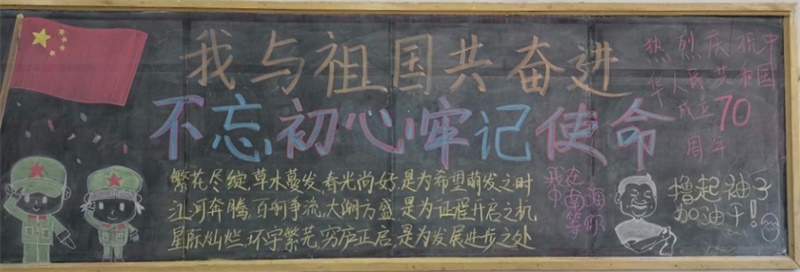 我与祖国共奋进
不忘初心牢记使命
繁花尽绽,草木蔓发,春光尚好,是为希望萌发之时
江河奔腾,百舸争流,大潮方盛,是为征程开启之机
星际灿烂,环宇繁芜,穷庐正启,是为发展进步之处
热烈庆祝中
华人民共和国
成立70
周年
我在
中南海
等你
撸起油子
加油干!